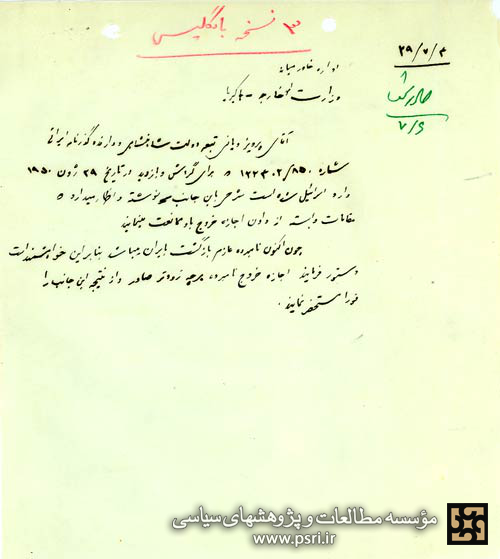 ۳ نسخه بانگلیسی
۲۹/۷/۴
اداره خاور میانه
وزارت امور خارجه - هاکیریا
صادر شد
۷/۶
آقای پرویز تبعه دولت شاهنشاهی و دارنده گذرنامه ایرانی
شماره ۱۲۲۳۰۲/۸۵۰ که برای گردش و بازدید در تاریخ ۲۹ ژون ۱۹۵۰
وارد اسرائیل شده است شرحی باین جانب نوشته و اظهار میدارد که
مقامات وابسته از دادن اجازه خروج باو ممانعت مینمایند
چون اکنون نامبرده عازم بازگشت بایران میباشد بنابراین خواهشمند است
دستور فرمایند اجازه خروج نامبرده هر چه زودتر صادر و از نتیجه این جانب را
فورا مستحضر نمایند.
مؤسسه مطالعات و پژوهشهای سیاسی
www.psri.ir